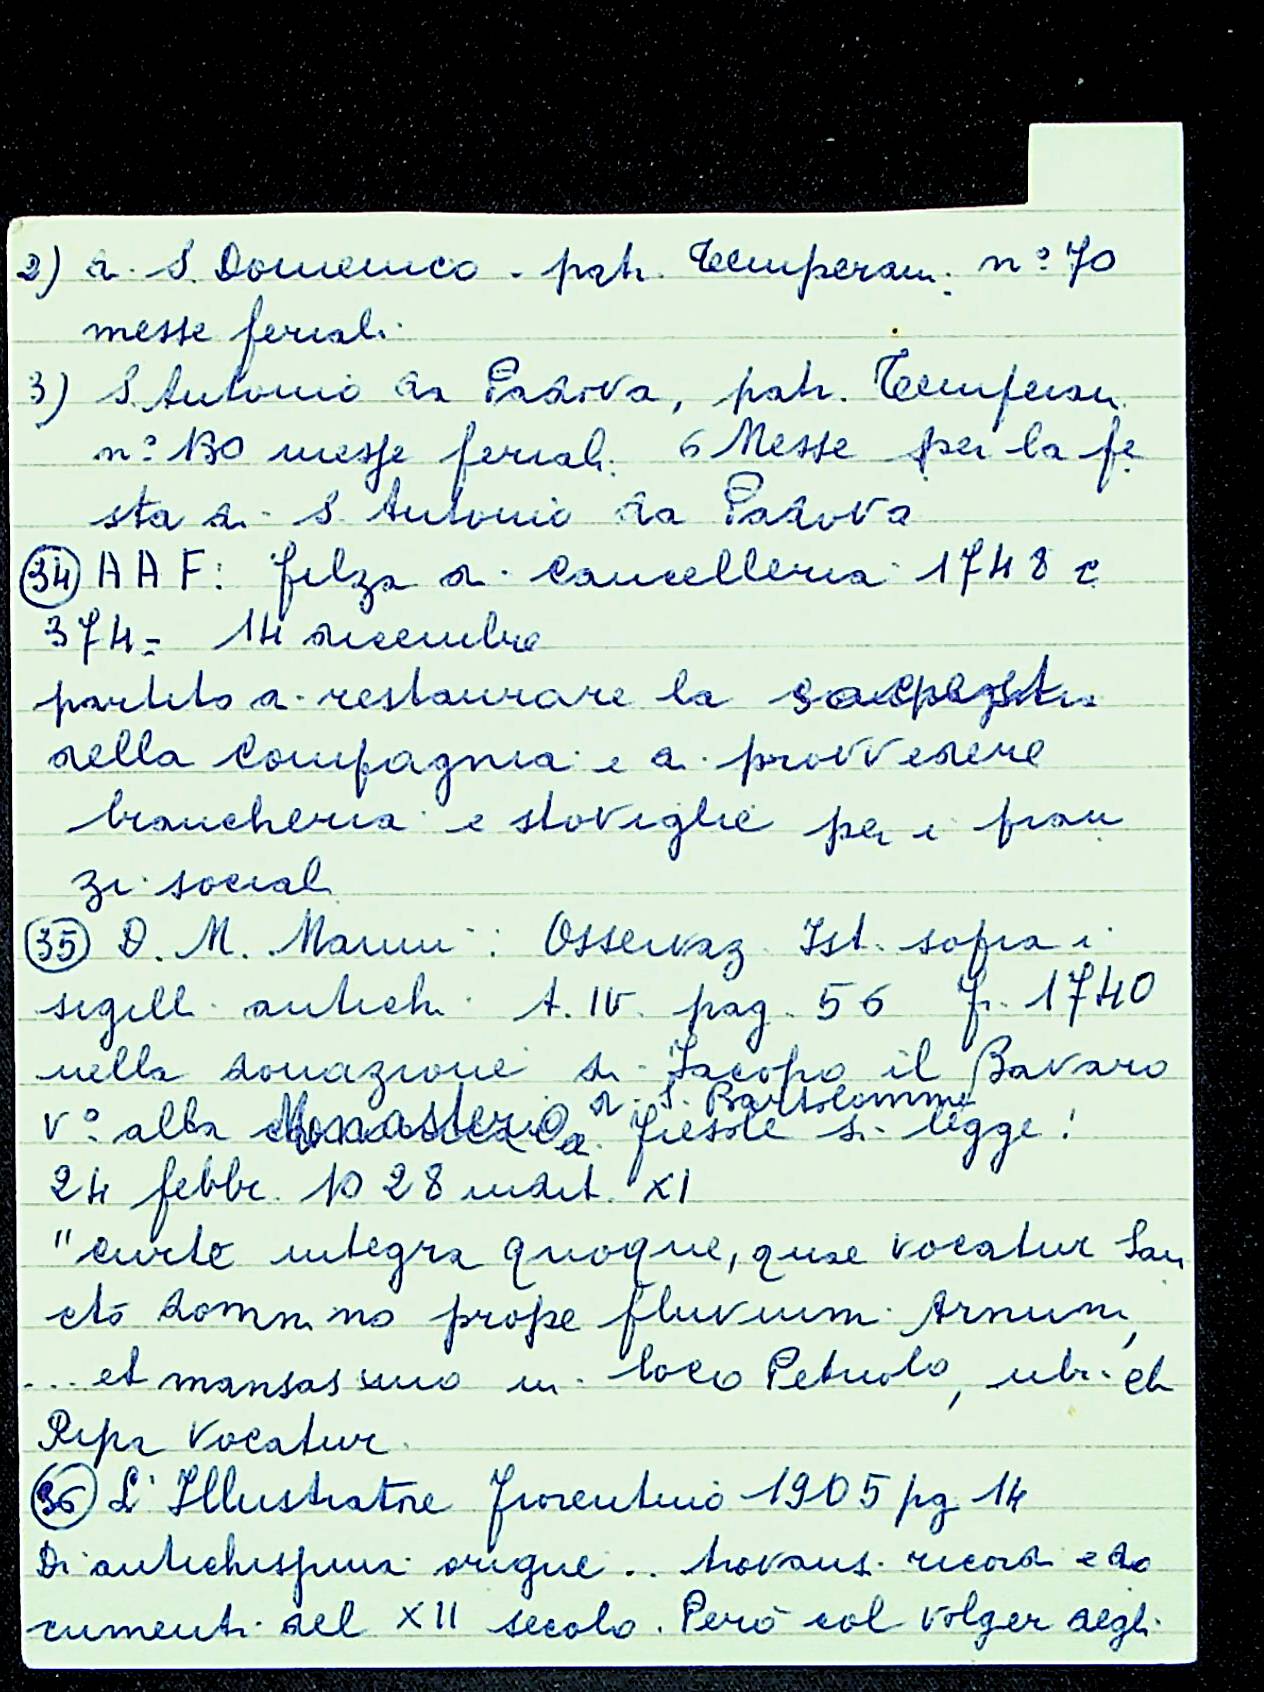 2) di S. Domenico - patr. Temperani n° 70
messe feriali
3) S. Antonio da Padova, patr. Temperani
n° 130 messe feriali. 6 Messe per la fe
sta di S. Antonio da Padova
34 A A F: filza di Cancelleria 1748 c
374= 14 dicembre
partito di restaurare la
della Compagnia e di provvedere
biancheria e stoviglie per i pran
zi sociali
35 D. M. Manni: Osservaz. Ist. sopra i
sigilli antichi t. IV. pag. 56 Fi. 1740
nella donazione di Jacopo il Bavaro
V° alla Monasterio di S. Bartolommeo
a Fiesole si legge:
24 febbr. 1028 indit. XI
"curte integra quoque, quae vocatur San
cto domnino prope fluvium Arnum,
... et mansas uno in loco Petriolo, ubi et
Ripa vocatur
36 L'Illustratore Fiorentino 1905 pg 14
Di antichissima origine .. trovansi ricordi e do
cumenti del XII secolo. Però col volger degli